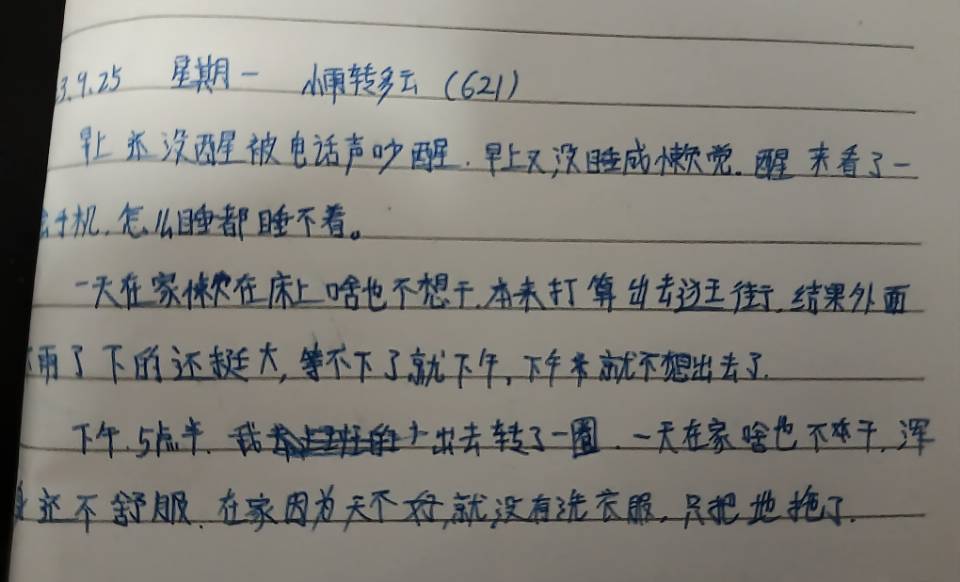 3.9.25 星期一 小雨转多云 (621)
早上还没醒被电话声吵醒. 早上又没睡成懒觉. 醒来看了一
会手机. 怎么睡都睡不着。
一天在家懒在床上啥也不想干. 本来打算出去逛街. 结果外面
下雨了下的还挺大, 等不下了就下午, 下午来就不想出去了.
下午. 5点半. 我 出去转了一圈. 一天在家啥也不干, 浑
身还不舒服. 在家因为天不好, 就没有洗衣服, 只把地拖了.